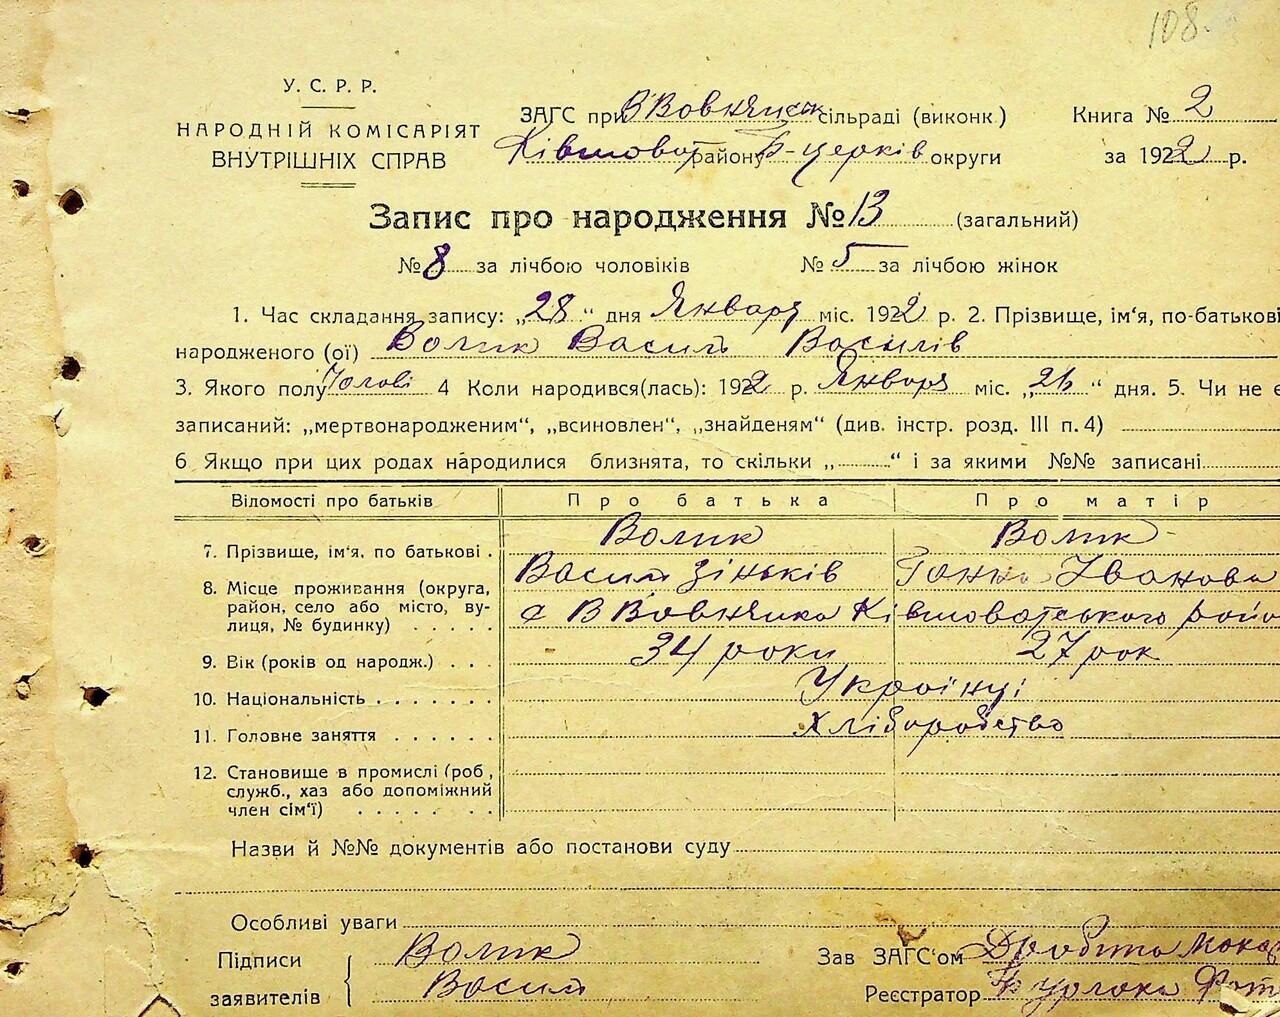 108.
У. С. Р. Р.
НАРОДНІЙ КОМІСАРІЯТ
ВНУТРІШНІХ СПРАВ
ЗАГС при ВВовнянск сільраді (виконк)
Ківшоват району Б-церків округи
Книга № 2
за 1922 р.
Запис про народження № 13 (загальний)
№ 8 за лічбою чоловіків № 5 за лічбою жінок
1. Час складання запису: „28“ дня Января міс. 1922 р. 2. Прізвище, ім'я, по-батькові
народженого (ої) Волик Васил Василів
3. Якого полу Чолові 4 Коли народився(лась): 1922 р. Января міс. „ “ дня. 5. Чи не є
записаний: „мертвонародженим“, „всиновлен“, „знайденям“ (див. інстр. розд. III п. 4)
6 Якщо при цих родах народилися близнята, то скільки „ “ і за якими №№ записані
Відомості про батьків Про батька Про матір
7. Прізвище, ім'я, по батькові . Волик Волик
Васил Зіньків Ганна Іванова
8. Місце проживання (округа,
район, село або місто, ву-
лиця, № будинку) . . . . . с ВВовнянка Ківшоватського райо
9. Вік (років од народж.) . . . 34 роки 27 рок
10. Національність . . . . . . . Українці
11. Головне заняття . . . . . . хліборобство
12. Становище в промислі (роб,
служб., хаз або допоміжний
член сім'ї) . . . . . .
Назви й №№ документів або постанови суду
Особливі уваги
Підписи
заявителів
Волик
Васил
Зав ЗАГС'ом
Реєстратор Бурлака